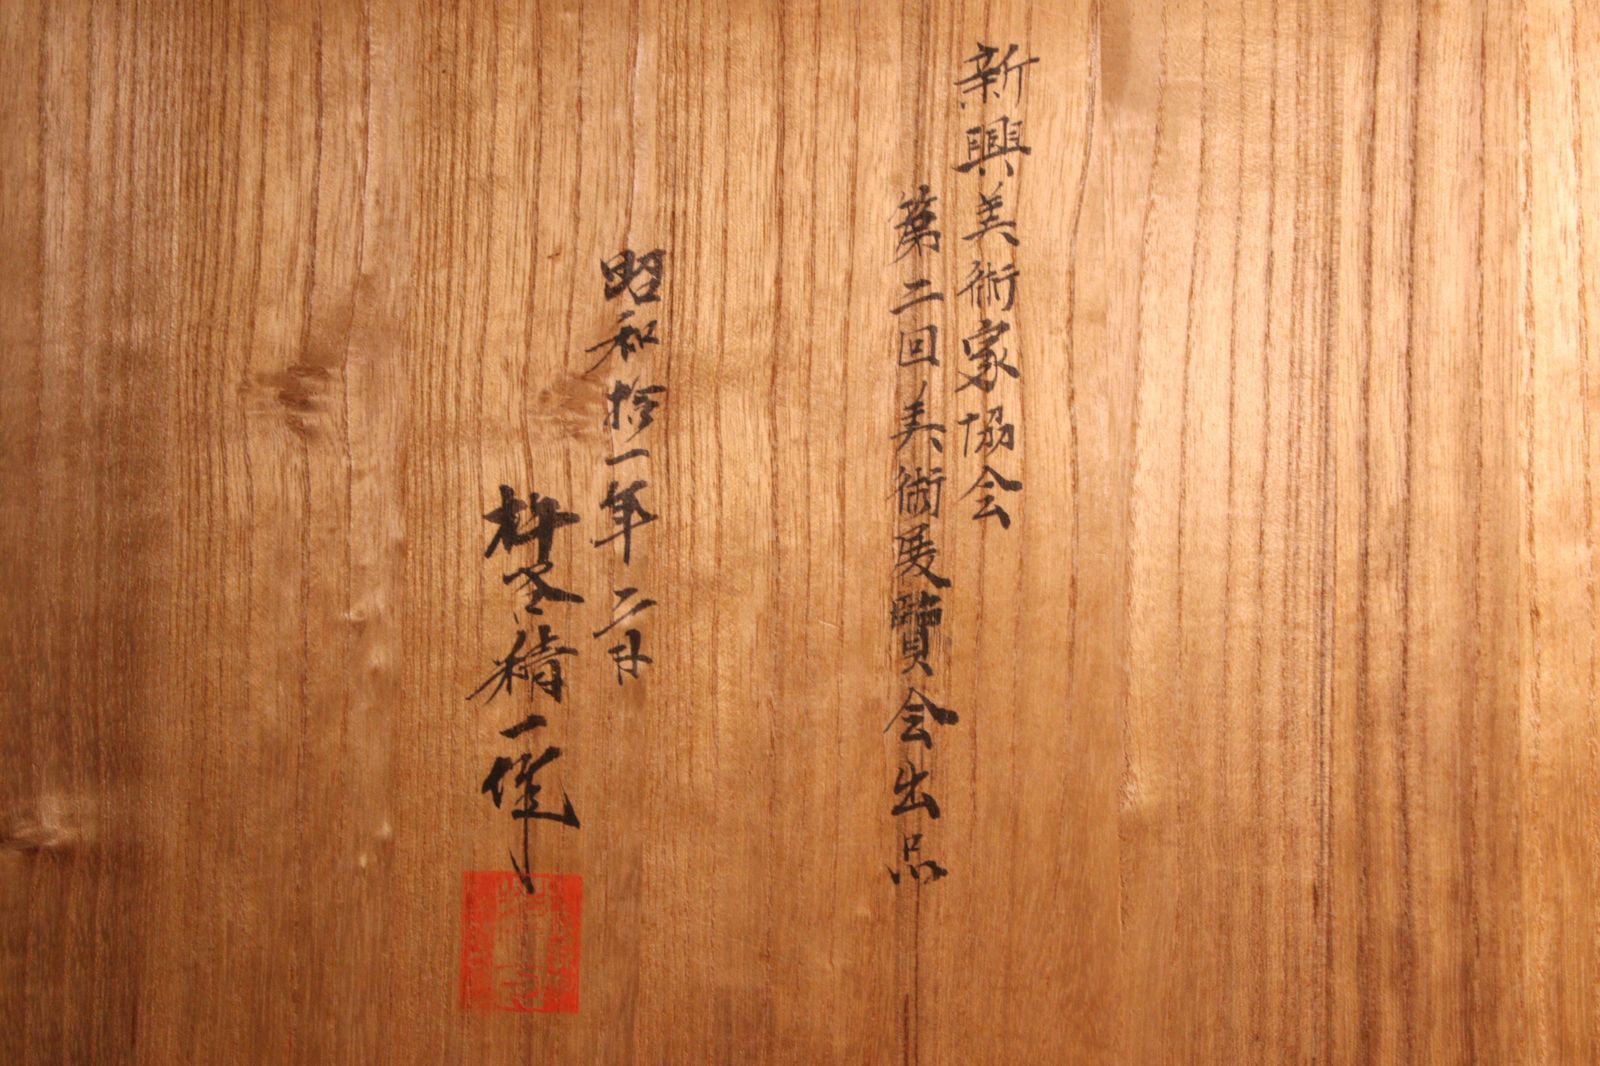 新興美術家協会
第二回美術展覧会出品
昭和拾一年二月
精一作